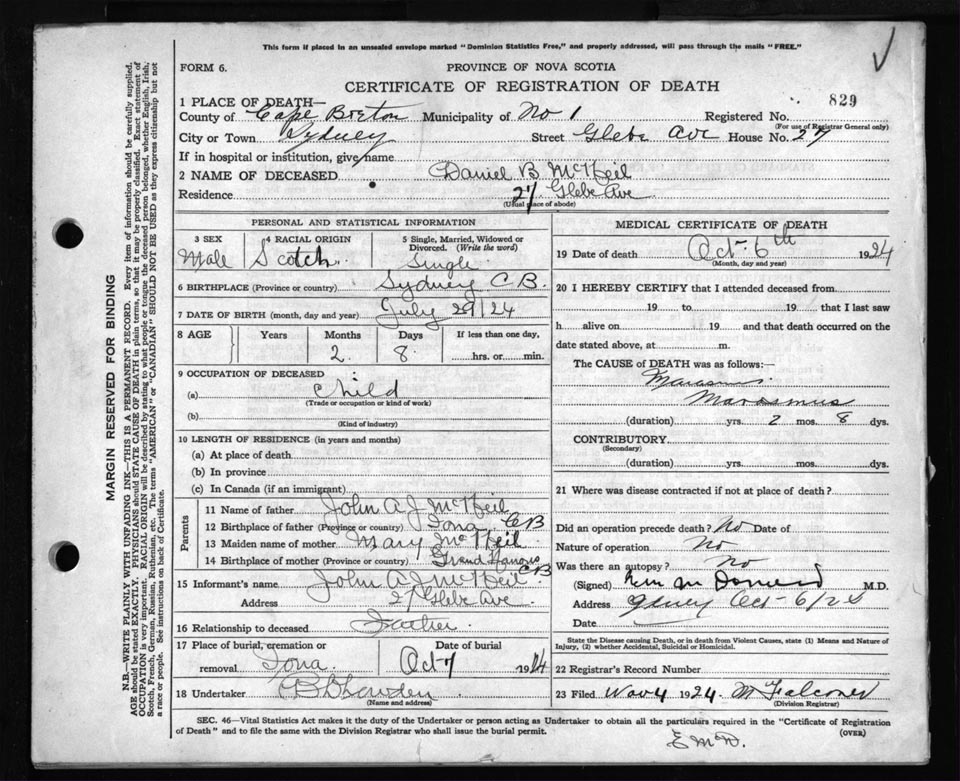 This form if placed in an unsealed envelope marked "Dominion Statistics Free," and properly addressed, will pass through the mails "FREE."
FORM 6.
PROVINCE OF NOVA SCOTIA
CERTIFICATE OF REGISTRATION OF DEATH
829
1 PLACE OF DEATH—
County of Cape Breton Municipality of No 1 Registered No.
(For use of Registrar General only)
City or Town Sydney Street Glebe Ave House No. 27
If in hospital or institution, give name
2 NAME OF DECEASED Daniel B McNeil
Residence 27 Glebe Ave
(Usual place of abode)
PERSONAL AND STATISTICAL INFORMATION
3 SEX Male
4 RACIAL ORIGIN Scotch
5 Single, Married, Widowed or Divorced. (Write the word) Single
6 BIRTHPLACE (Province or country) Sydney C.B.
7 DATE OF BIRTH (month, day and year) July 29/24
8 AGE Years Months Days If less than one day,
2 8 hrs. or min.
9 OCCUPATION OF DECEASED
(a) Child
(Trade or occupation or kind of work)
(b)
(Kind of industry)
10 LENGTH OF RESIDENCE (in years and months)
(a) At place of death
(b) In province
(c) In Canada (if an immigrant)
Parents
11 Name of father John A J McNeil
12 Birthplace of father (Province or country) Iona CB
13 Maiden name of mother Mary McNeil
14 Birthplace of mother (Province or country) Grand CB
15 Informant's name John A J McNeil
Address 27 Glebe Ave
16 Relationship to deceased Father
17 Place of burial, cremation or removal Iona Date of burial Oct 7 1924
18 Undertaker
(Name and address)
MEDICAL CERTIFICATE OF DEATH
19 Date of death Oct 6th 1924
(Month, day and year)
20 I HEREBY CERTIFY that I attended deceased from
19 to 19 that I last saw
h alive on 19 and that death occurred on the
date stated above, at m.
The CAUSE OF DEATH was as follows:
Marasmus
Marasmus
(duration) yrs. 2 mos. 8 dys.
CONTRIBUTORY
(Secondary)
(duration) yrs. mos. dys.
21 Where was disease contracted if not at place of death?
Did an operation precede death? No Date of
Nature of operation No
Was there an autopsy? No
(Signed) M.D.
Address Oct 6/24
Date
State the Disease causing Death, or in death from Violent Causes, state (1) Means and Nature of Injury, (2) whether Accidental, Suicidal or Homicidal.
22 Registrar's Record Number
23 Filed Nov 4 1924 M Falconer
(Division Registrar)
SEC. 46—Vital Statistics Act makes it the duty of the Undertaker or person acting as Undertaker to obtain all the particulars required in the "Certificate of Registration of Death" and to file the same with the Division Registrar who shall issue the burial permit. (OVER)
MARGIN RESERVED FOR BINDING
N.B.—WRITE PLAINLY WITH UNFADING INK—THIS IS A PERMANENT RECORD. Every item of information should be carefully supplied.
AGE should be stated EXACTLY. PHYSICIANS should STATE CAUSE OF DEATH in plain terms, so that it may be properly classified. Exact statement of
OCCUPATION is very important. RACIAL ORIGIN will be described by stating to what people or tongue the deceased person belonged, whether English, Irish,
Scotch, French, German, Russian, Ruthenian, etc. The terms "AMERICAN" or "CANADIAN" SHOULD NOT BE USED as they express citizenship but not
a race or people. See instructions on back of Certificate.